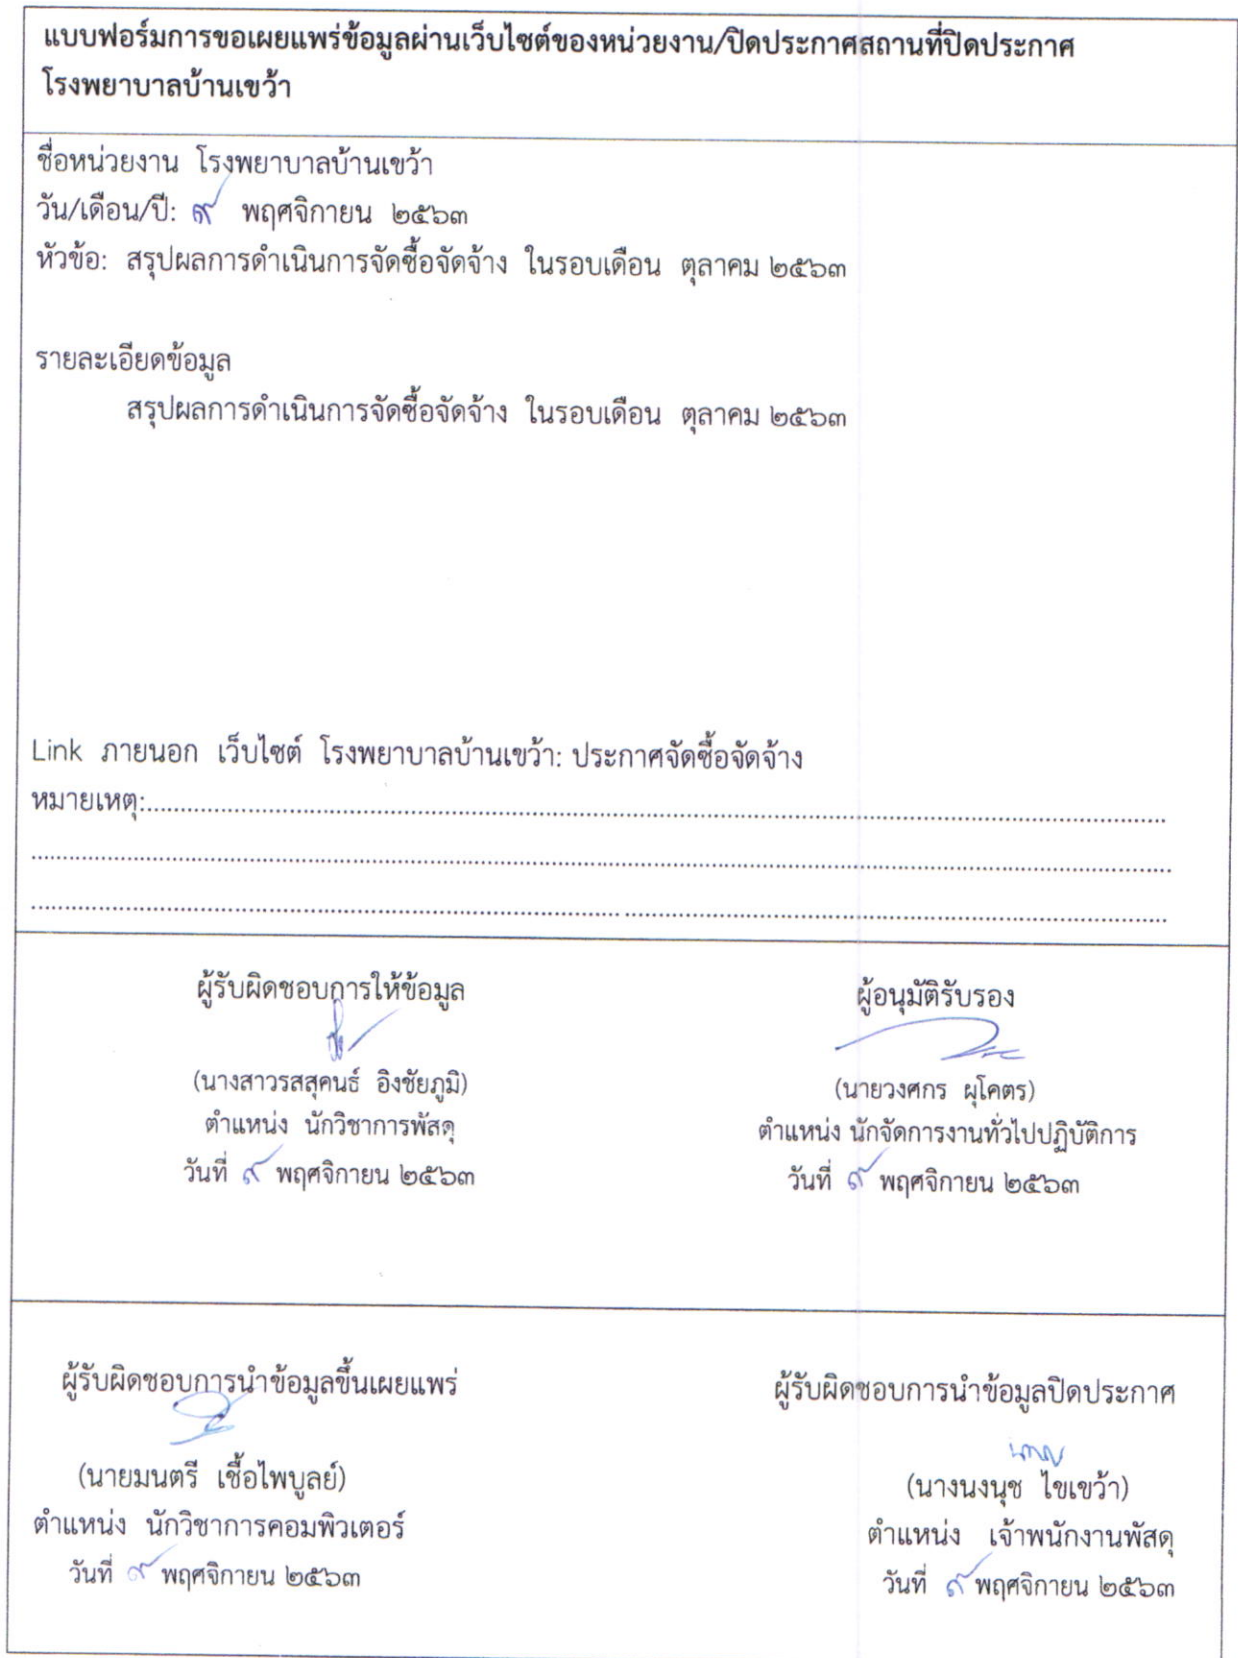 แบบฟอร์มการขอเผยแพร่ข้อมูลผ่านเว็บไซต์ของหน่วยงาน/ปิดประกาศสถานที่ปิดประกาศ
โรงพยาบาลบ้านเขว้า
ชื่อหน่วยงาน โรงพยาบาลบ้านเขว้า
วัน/เดือน/ปี: ๙ พฤศจิกายน ๒๕๖๓
หัวข้อ: สรุปผลการดำเนินการจัดซื้อจัดจ้าง ในรอบเดือน ตุลาคม ๒๕๖๓
รายละเอียดข้อมูล
สรุปผลการดำเนินการจัดซื้อจัดจ้าง ในรอบเดือน ตุลาคม ๒๕๖๓
Link ภายนอก เว็บไซต์ โรงพยาบาลบ้านเขว้า: ประกาศจัดซื้อจัดจ้าง
หมายเหตุ:
ผู้รับผิดชอบการให้ข้อมูล
(นางสาวรสสุคนธ์ อิงชัยภูมิ)
ตำแหน่ง นักวิชาการพัสดุ
วันที่ ๙ พฤศจิกายน ๒๕๖๓
ผู้อนุมัติรับรอง
(นายวงศกร ผุโคตร)
ตำแหน่ง นักจัดการงานทั่วไปปฏิบัติการ
วันที่ ๙ พฤศจิกายน ๒๕๖๓
ผู้รับผิดชอบการนำข้อมูลขึ้นเผยแพร่
(นายมนตรี เชื้อไพบูลย์)
ตำแหน่ง นักวิชาการคอมพิวเตอร์
วันที่ ๙ พฤศจิกายน ๒๕๖๓
ผู้รับผิดชอบการนำข้อมูลปิดประกาศ
(นางนงนุช ไขเขว้า)
ตำแหน่ง เจ้าพนักงานพัสดุ
วันที่ ๙ พฤศจิกายน ๒๕๖๓